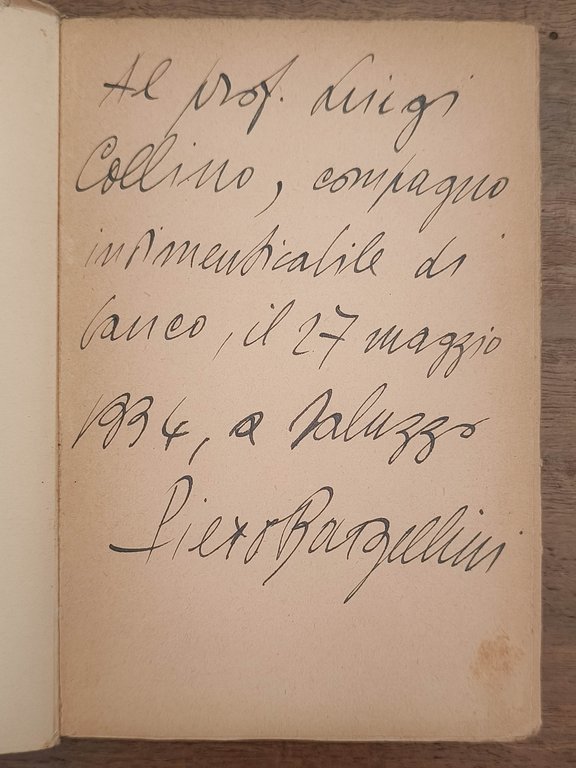 Al prof. Luigi
Collino, compagno
indimenticabile di
banco, il 27 maggio
1934, a Saluzzo
Piero Bargellini